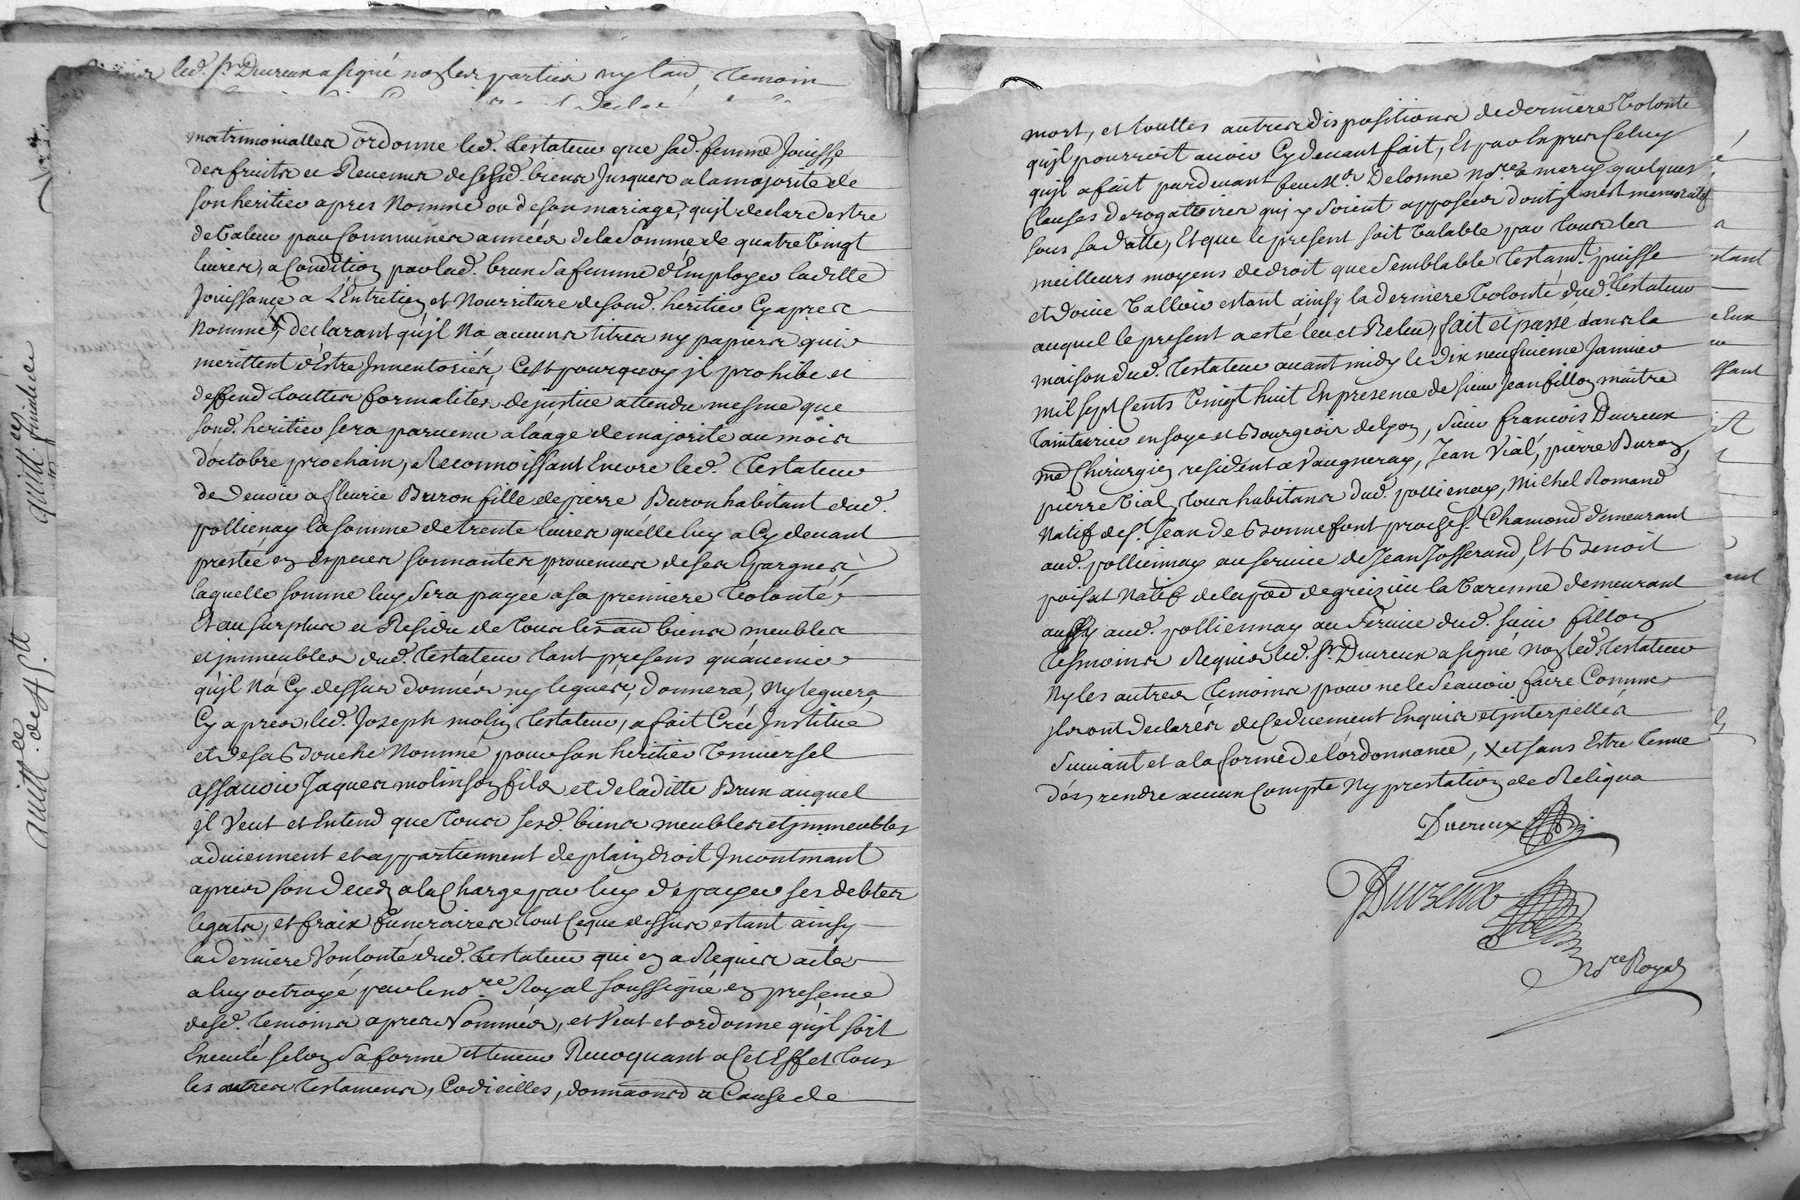 led. sr. Duvreux a signé non les parties ny laud. temoin
matrimonialles ordonne led. testateur que sad. femme Jouisse
des fruits et Revenus de sesd. biens Jusques a la majorité de
son heritier apres Nommé ou de son mariage, qu'jl declare estre
de valeur par Communes années de la somme de quatre vingt
livres, a Condition par lad. brun sa femme d'Employer laditte
Jouissance a L'Entretien et Nourriture de sond. heritier Cy apres
Nommé, declarant qu'jl Na aucuns titres ny papiers qui
merittent d'Estre Jnventoriés, C'est pourquoy jl prohibe et
deffend touttes formalités de justice attendu mesme que
sond. heritier sera parvenu a laage de majorité au mois
d'octobre prochain, Reconnoissant Encore led. testateur
de devoir a fleurie Buron fille de pierre Buron habitant dud.
pollienay la somme de trente livres quelle luy a Cy devant
prestée en Especes sonnantes provenues de ses Epargnes,
laquelle somme luy sera payée a sa premiere volonté,
Et au surplus et Residu de tous les aud biens meubles
et jmmeubles dud. testateur tant presens qu'avenir
qu'jl Na Cy dessus donnés ny legués, donnera, Ny leguera
Cy apres, led. Joseph molin testateur, a fait Créé Jnstitué
et de sa Bouche Nommé pour son heritier vniversel
assavoir Jaques molin son fils et de laditte Brun auquel
jl Veut et Entend que tous sesd. biens meubles et jmmeubles
adviennent et appartiennent de plain droit Jncontinant
apres son deced a la Charge par luy d'e payer ses debtes
legats, et fraix funeraires tout Ceque dessus estant ainsy
la derniere Vonlonté dud. testateur qui en a Requis acte
a luy octroyé par le nore. Royal soussigné en presence
desd. temoins apres Nommés, et Veut et ordonne qu'jl soit
Executé selon sa forme et teneur Revoquant a Cet Effet tous
les autres testamens, Codicilles, donnaons a Cause de
quitt. cy
finitre
quittee de 45 tt
mort, et touttes autres dispositions de derniere volonté
qu'jl pourroit avoir Cy devant fait, Et par Exprés Celuy
qu'jl a fait pardevant feu Me. Delorme Nore. a mercy quelques
Clauses derogattoires qui y soient apposées dont jl n'est memoratif
sous sa datte, Et que le present soit valable par tous les
meilleurs moyens de droit que semblable testamt. puisse
et doive valloir estant ainsy la derniere volonté dud. testateur
auquel le present a esté leu et Releu, fait et passé dans la
maison dud. testateur avant midy le dix neufvieme Janvier
mil sept Cents vingt huit En presence de sieur Jean fillon maitre
teinturier en soye et Bourgeois de lyon, sieur francois Duvreux
me Chirurgien resident a Vaugneray, Jean Vial, pierre Buron,
pierre Vial, tous habitans dud. pollienay, Michel Romand
Natif de st. Jean de Bonnefont proche st. Chamond demeurant
aud. pollienay au service de Jean Josserand, Et Benoit
poisat Natif de la psse de greizieu la Varenne demeurant
aussy aud. pollienay au service dud. sieur fillon
tesmoins Requis led. sr. Duvreux a signé non led. testateur
Ny les autres temoins pour ne le scavoir faire Comme
jls ont declarés de Ce duement Enquis et jnterpellés
suivant et a la forme de l'ordonnance, x et sans Estre tenue
d'en rendre aucun Compte Ny prestation de Reliqua
Duvreux
Duvreux
Nore Royal